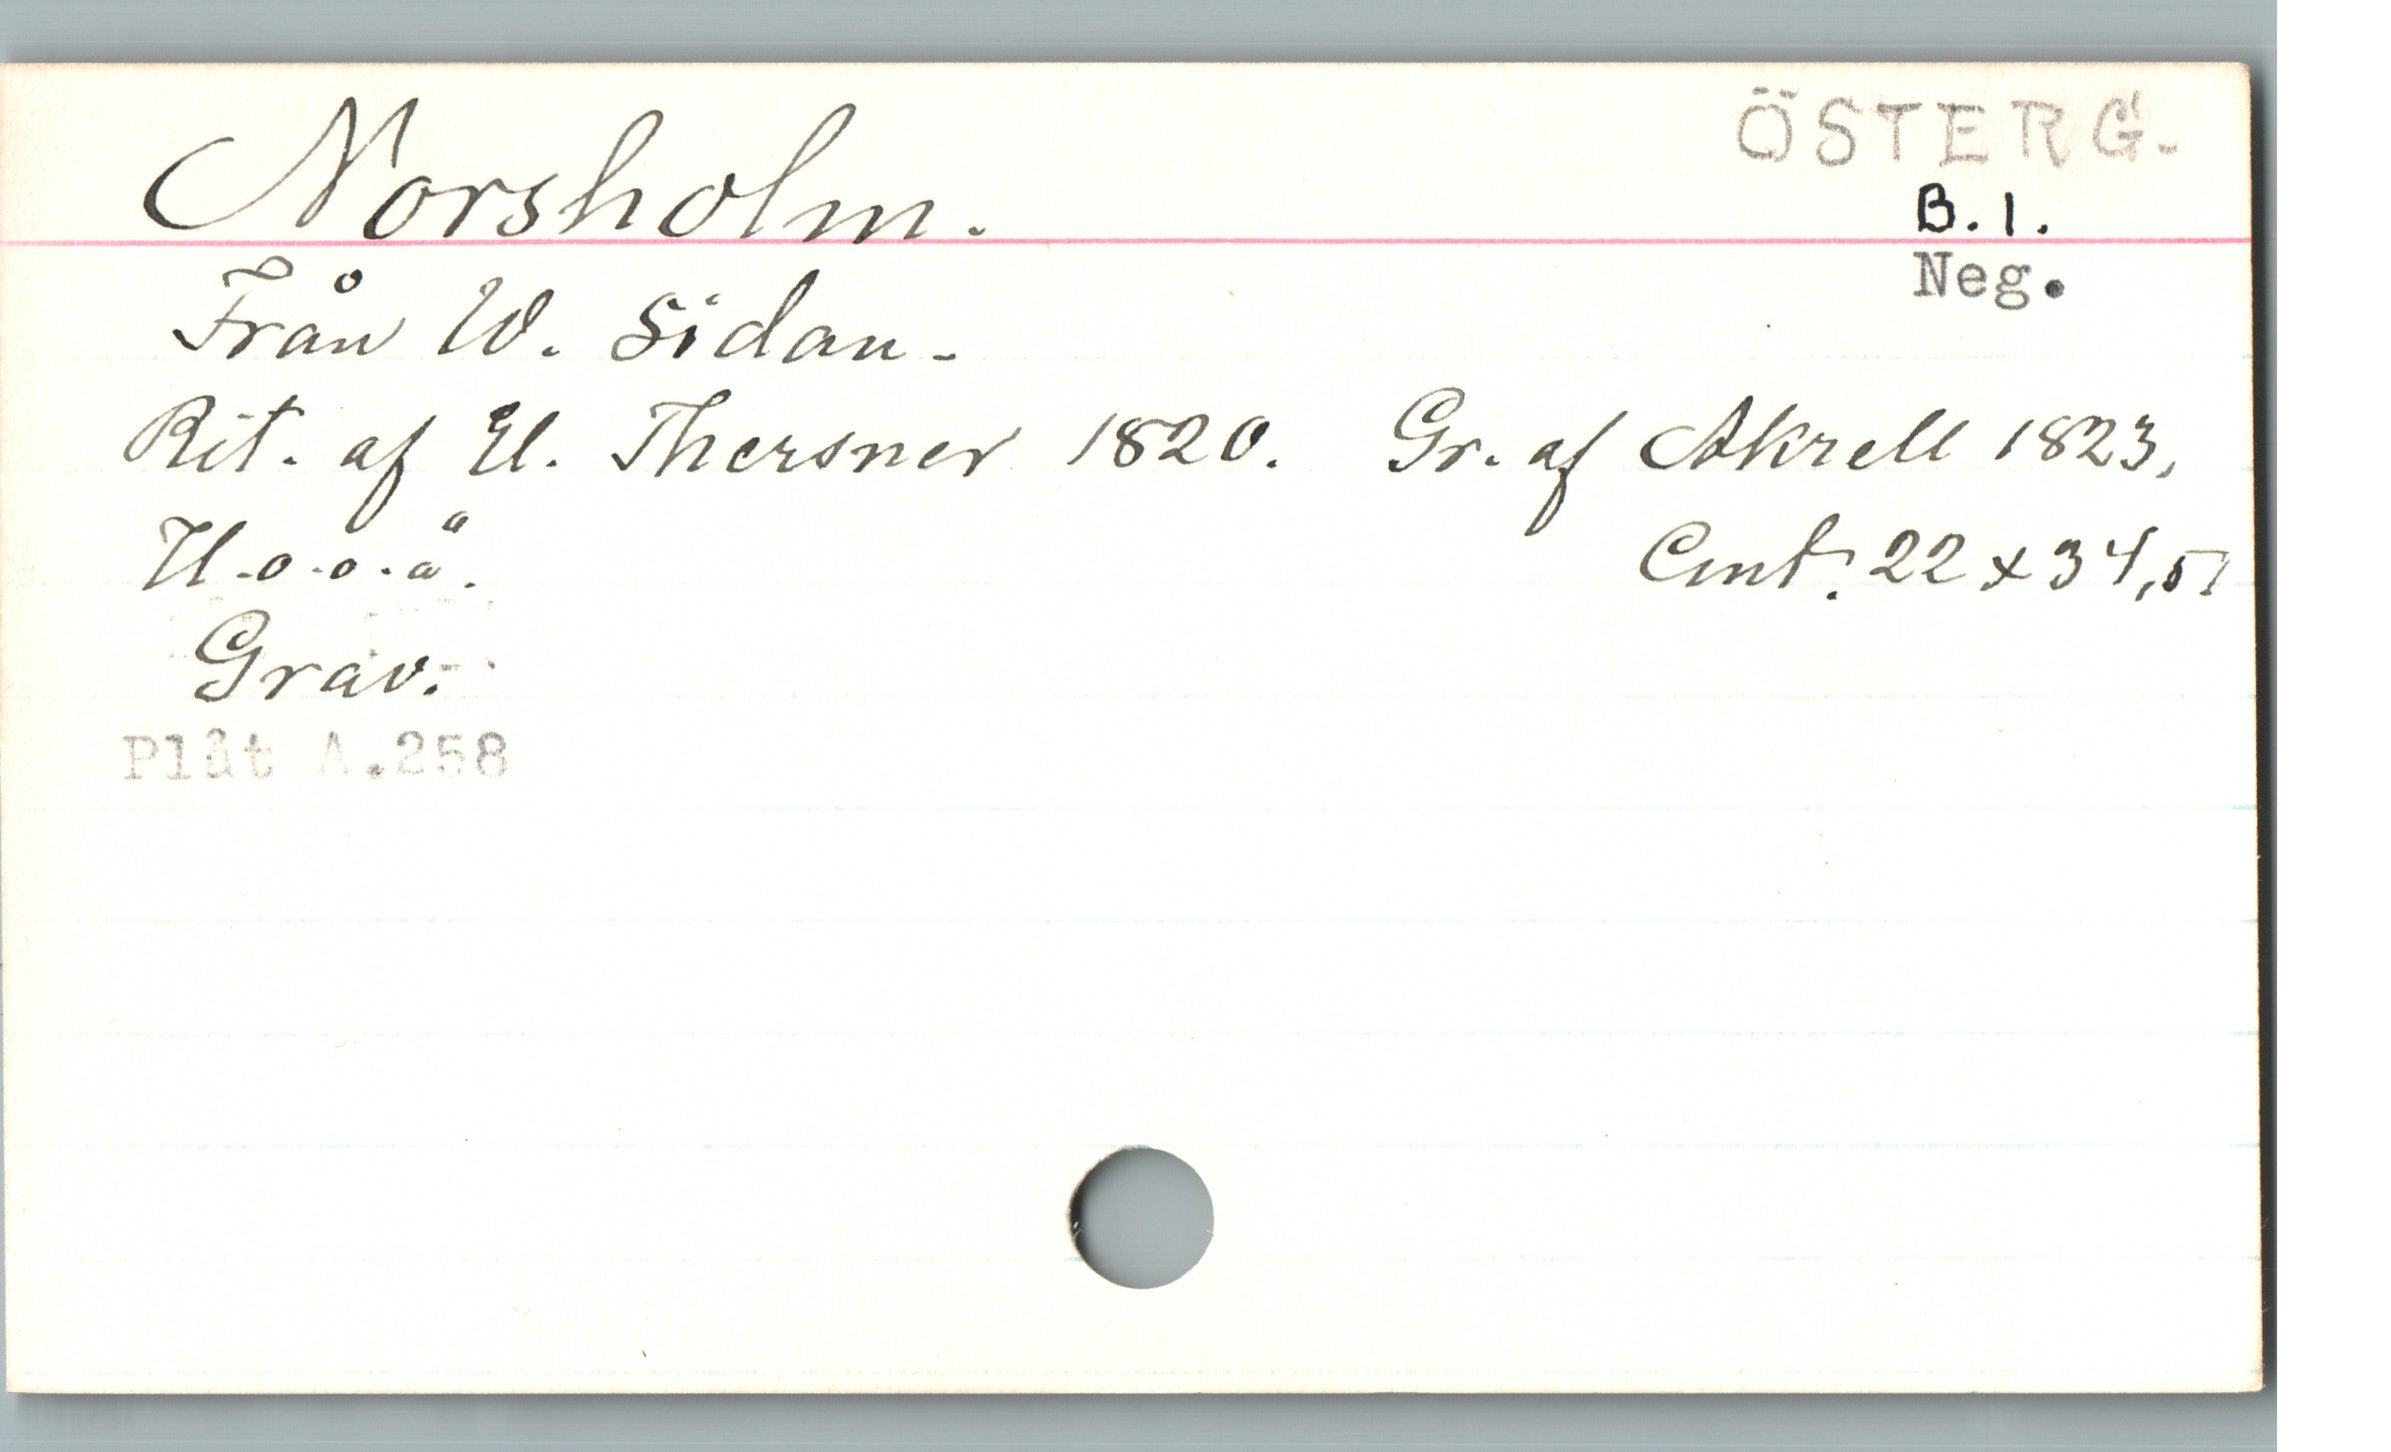 Norsholm.
ÖSTERG.
B.1.
Neg.
Från W. Sidan.
Rit. af U. Thersner 1820. Gr. af Akrell 1823.
Cmt. 22 x 34,5
Grav.
Plåt A.258